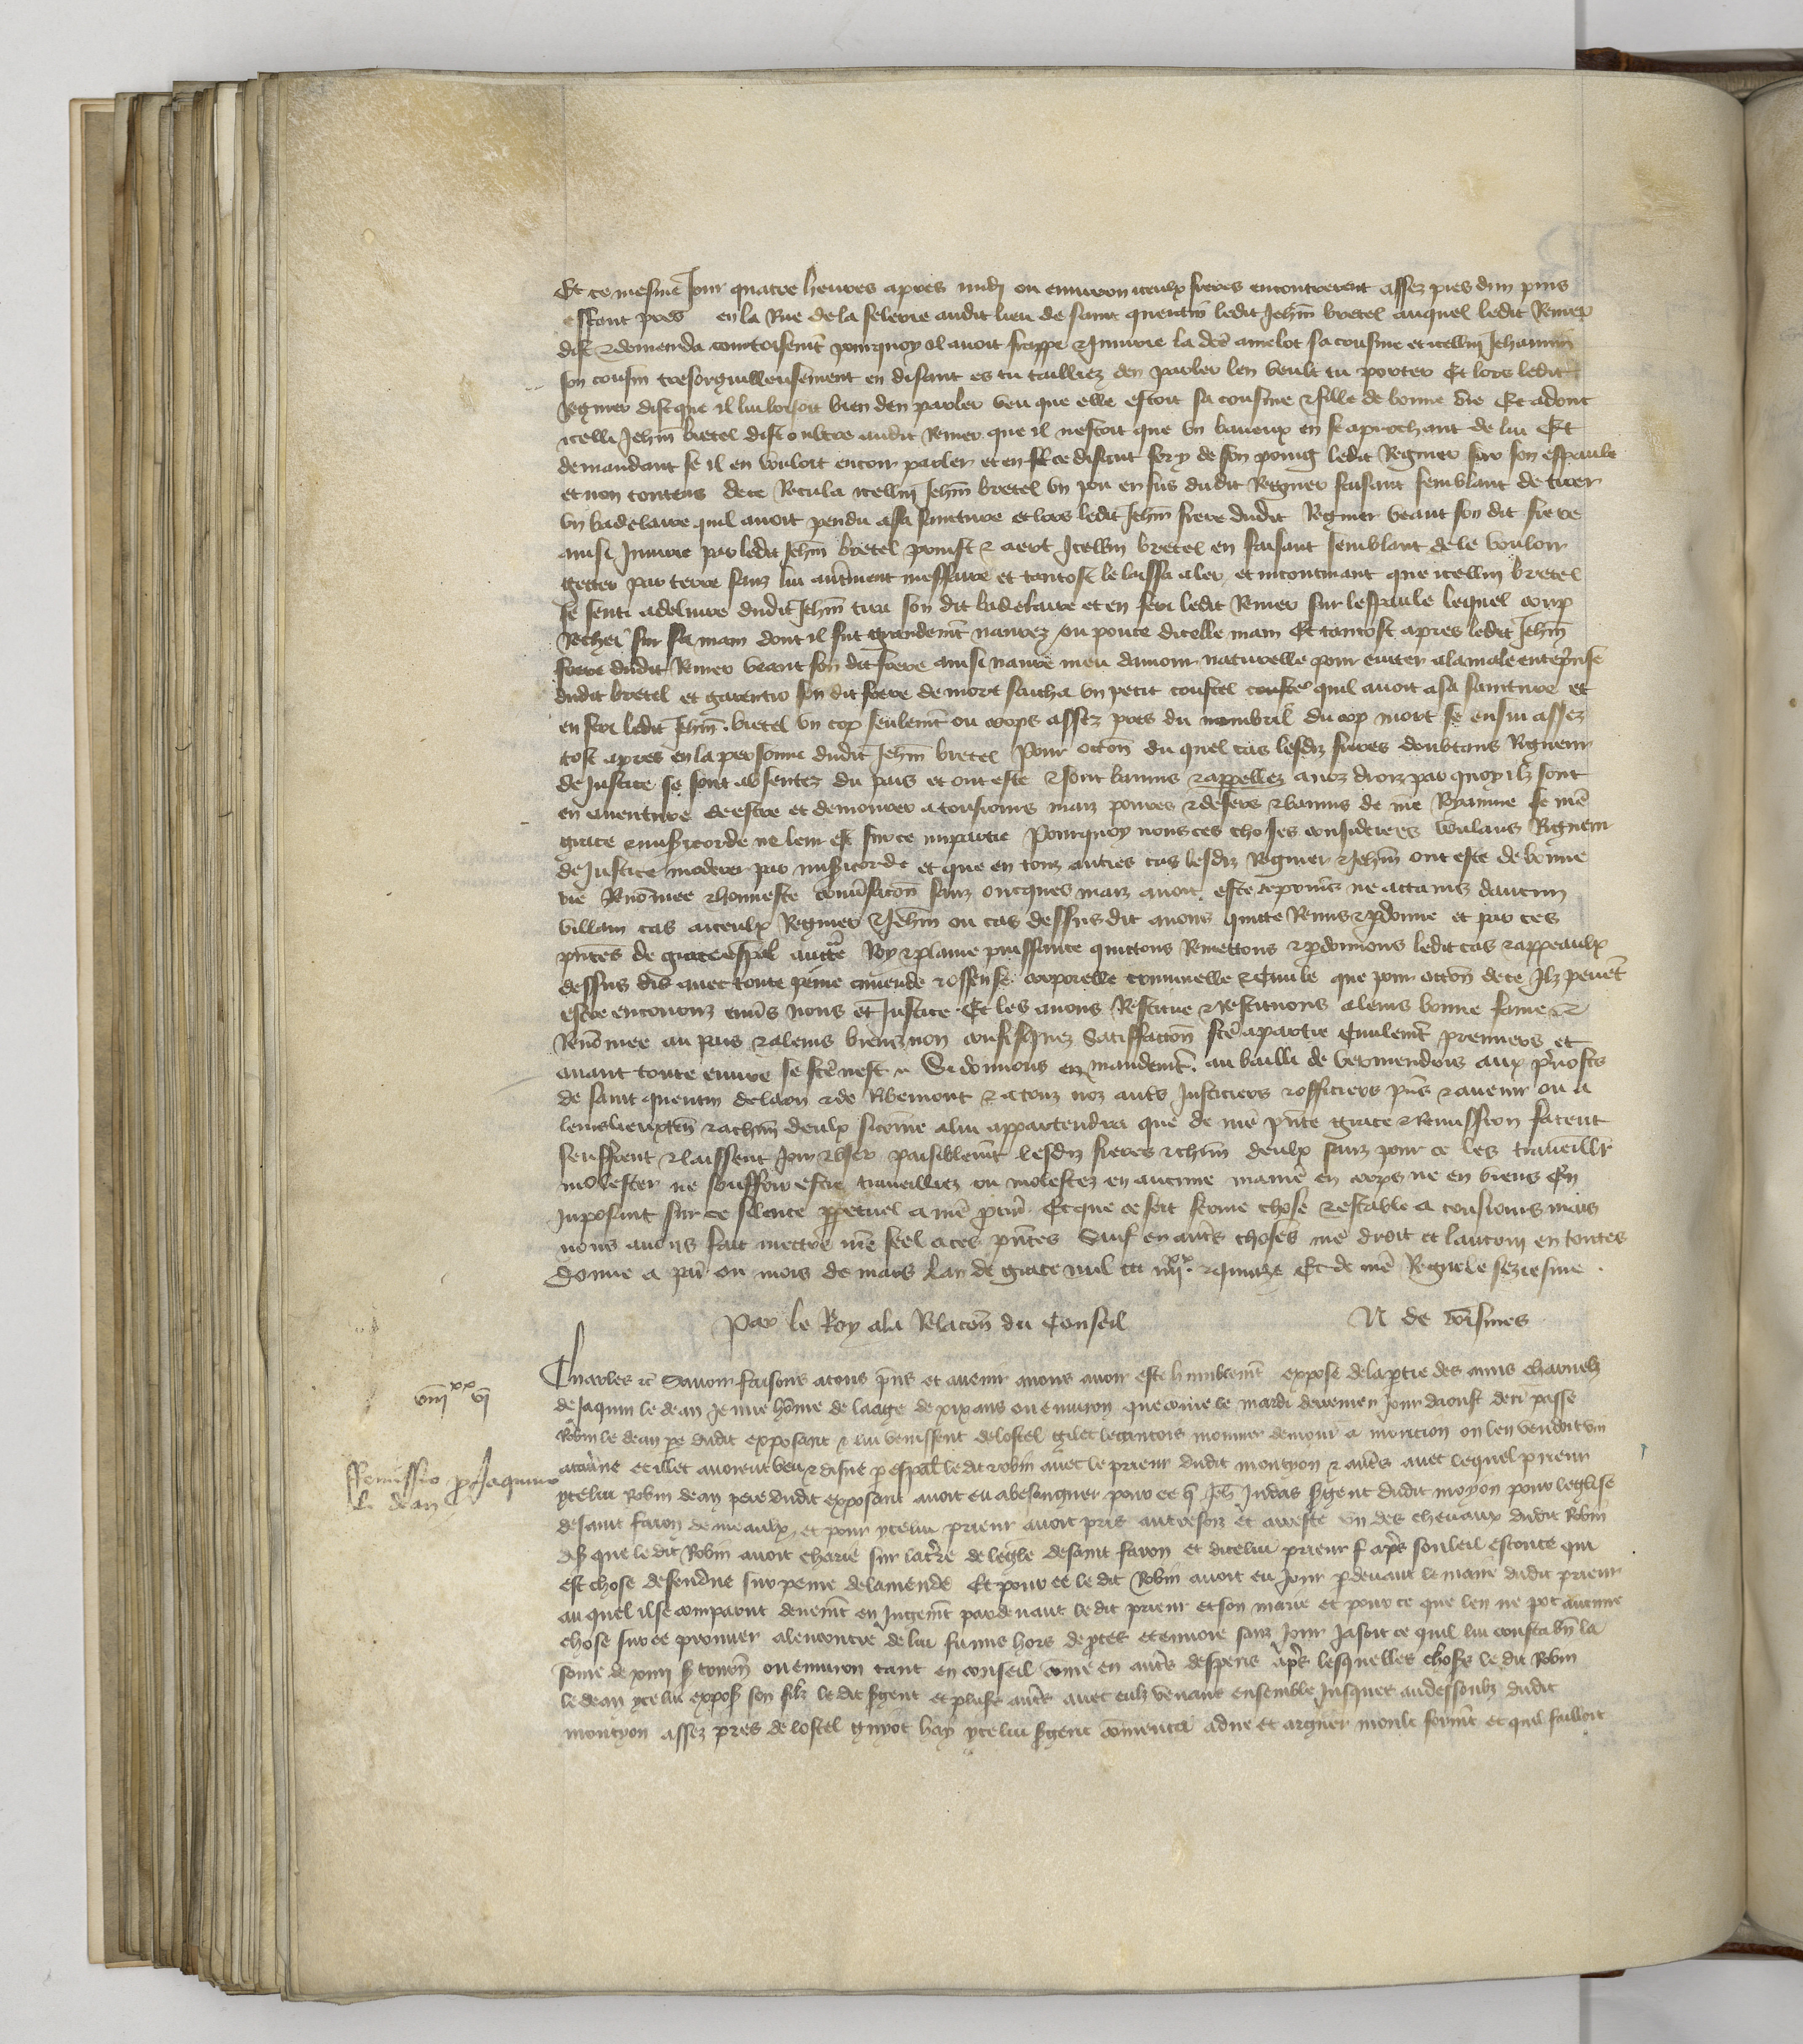 Et ce mesme Jour quatre heures apres midj ou environ iceulx freres encontrerent assez pres dun puis
estant pres en la Rue de la selerie audit lieu de saint quentin ledit Jehm bretel auquel ledit Renier
dist & demanda courtoisemt pourquoy il avoit frappe & Iniurie la dce amelot sa cousine et icellui Jehannin
son cousin tresorguilleusement en disant es tu tailliez den parler len veult tu porter Et lors ledit
Regnier dist que il lui loisoit bien den parler veu que elle estoit sa cousine & fille de bonne vie Et adont
icelli Jehm bretel dist oultre audit Renier que il nestoit que un baveux en se aprochant de lui Et
demandant se il en vouloit encor parler et en ce disant fery de son poing ledit Regnier sur son espaule
et non contens dece Recula icellui Jehm bretel un pou en sus dudit Regnier faisant semblant de tirer
un badelaire quil avoit pendu a sa sainture et lors ledit Jehm frere dudit Regnier veant son dit frere
ainsi Iniurie par ledit Jehm bretel prinst & aert Icellui bretel en faisant semblant de le vouloir
getter par terre sanz lui autrment meffaire et tantost le laissa aler et incontinant que icellui bretel
se senti adelivre dudit Jehm tira son dit badelaire et en feri ledit Renier sur lespaule lequel coup
Rechei sur sa main dont il fut grandemt navrez ou pouce dicelle main Et tantost apres ledit Jehm
frere dudit Renier veant son dit frere ainsi navre meu damour naturelle pour eviter a la male enteprinse
dudit bretel et garentir son dit frere de mort sacha un petit coustel quil avoit a sa sainture et
en feri ledit Jehm bretel un cop seulemt ou corps assez pres du nombril du cop mort se ensui assez
tost apres en la personne dudit Jehm bretel Pour occon du quel cas lesdiz freres doubtans Rigueur
de Justice se sont absentez du pais et ont este & sont bannis & appellez a noz droiz par quoy ilz sont
en aventure de estre et demourer a tousiours maiz povres & desers & bannis de nre Royaume se nre
grace & misericorde ne leur est sur ce impartie Pourquoy nous ces choses considerees voulans Rigueur
de Justice moderer par misericorde et que en touz autres cas lesdiz Regnier & Jehm ont este de bonne
vie Renommee & honneste conversacon sanz oncques maiz avoir este reprins ne attains daucun
villain cas a iceulx Regnier & Jehm ou cas dessus dit avons quitte Remis & pdonne et par ces
pntes de grace espal auctte Roy & plaine puissance quittons Remettons & pdonnons ledit cas & appeaulx
dessus dis avec toute peine amende & offense corporelle criminelle & Civile que pour occon de ce Ilz pevent
estre encouruz envs nous et Justice Et les avons Restitue & Restituons a leurs bonne fame &
Renommee au pais & a leurs biens non confisquez Satisfaccon fce a partie Civilemt premiers et
avant toute euvre se fce nest Si donnons en mandemt au bailli de vermendois aux prevosts
de saint quentin de laon & de Ribemont & a touz noz auts Justiciers & officiers pns & avenir ou a
leurs lieuxten & a chun deulx sicome a lui appartendra que de nre pnte grace & Remission facent
seuffrent & laissent Joir & user paisiblemt lesdiz freres & chun deulx sanz pour ce les traveillr
molester ne souffrir estre traveilliez ou molestez en aucune manie en corps ne en biens En
Inposant sur ce silence ppetuel a nre pcur Et que ce soit ferme chose & estable a tousiours mais
nous avons fait mectre nre seel a ces pntes Sauf en auts choses nre droit et lautruy en toutes
Donne a par ou mois de mars lan de grace mil ccc iiiixx & quinze Et de nre Regne le seziesme
Par le Roy a la Relacon du Conseil N de voisines
viiixx vi
Remissio p Jaquino le dean
Charles &c Savoir faisons a tous pns et avenir a nous avoir este humblemt expose de la ptie des amis charnelz
de Jaquin le dean Jeune home de laage de xix ans ou environ que come le mardi derrenier Jour daoust derr passe
Robin le dean pe dudit exposant & lui venissent de lostel gilet legantois monnier demour a montion ou len vendoit vin
a taverne et illec avoient beu & disne p espal ledit robin avec le prieur dudit montyon & auts avec lequel prieur
ycelui Robin dean pere dudit exposant avoit eu abesongner pour ce q Jeh Judas sgent dudit moyon pour leglise
de saint faron de meaulx et pour ycelui prieur avoit pris autresfoiz et arreste un des chevaux dudit Robin
dis que ledit Robin avoit charie sur latrre de leglse desaint faron et dicelui prieur aps souleil esconce qui
est chose defendue sur peine de lamende Et pour ce ledit Robin avoit eu Jour pdevant le maire dudit prieur
au quel il se comparut devemt en Jugemt pardevant le dit prieur et son maire et pour ce que len ne pot aucune
chose sur ce prouver alencontre de lui fu mis hors de pces et envoie sanz Jour Jasoit ce quil lui cousta bn la
some de xviij s tourn ou environ tant en conseil come en auts despens aps lesquelles choses le dit Robin
le dean ycelui expos son filz le dit sgent et pluss auts avec eulz venans ensemble Jusques audessoubz dudit
montyon assez pres de lostel guyot hay ycelui sgent comenca a dire et arguer moult formt et quil failloit